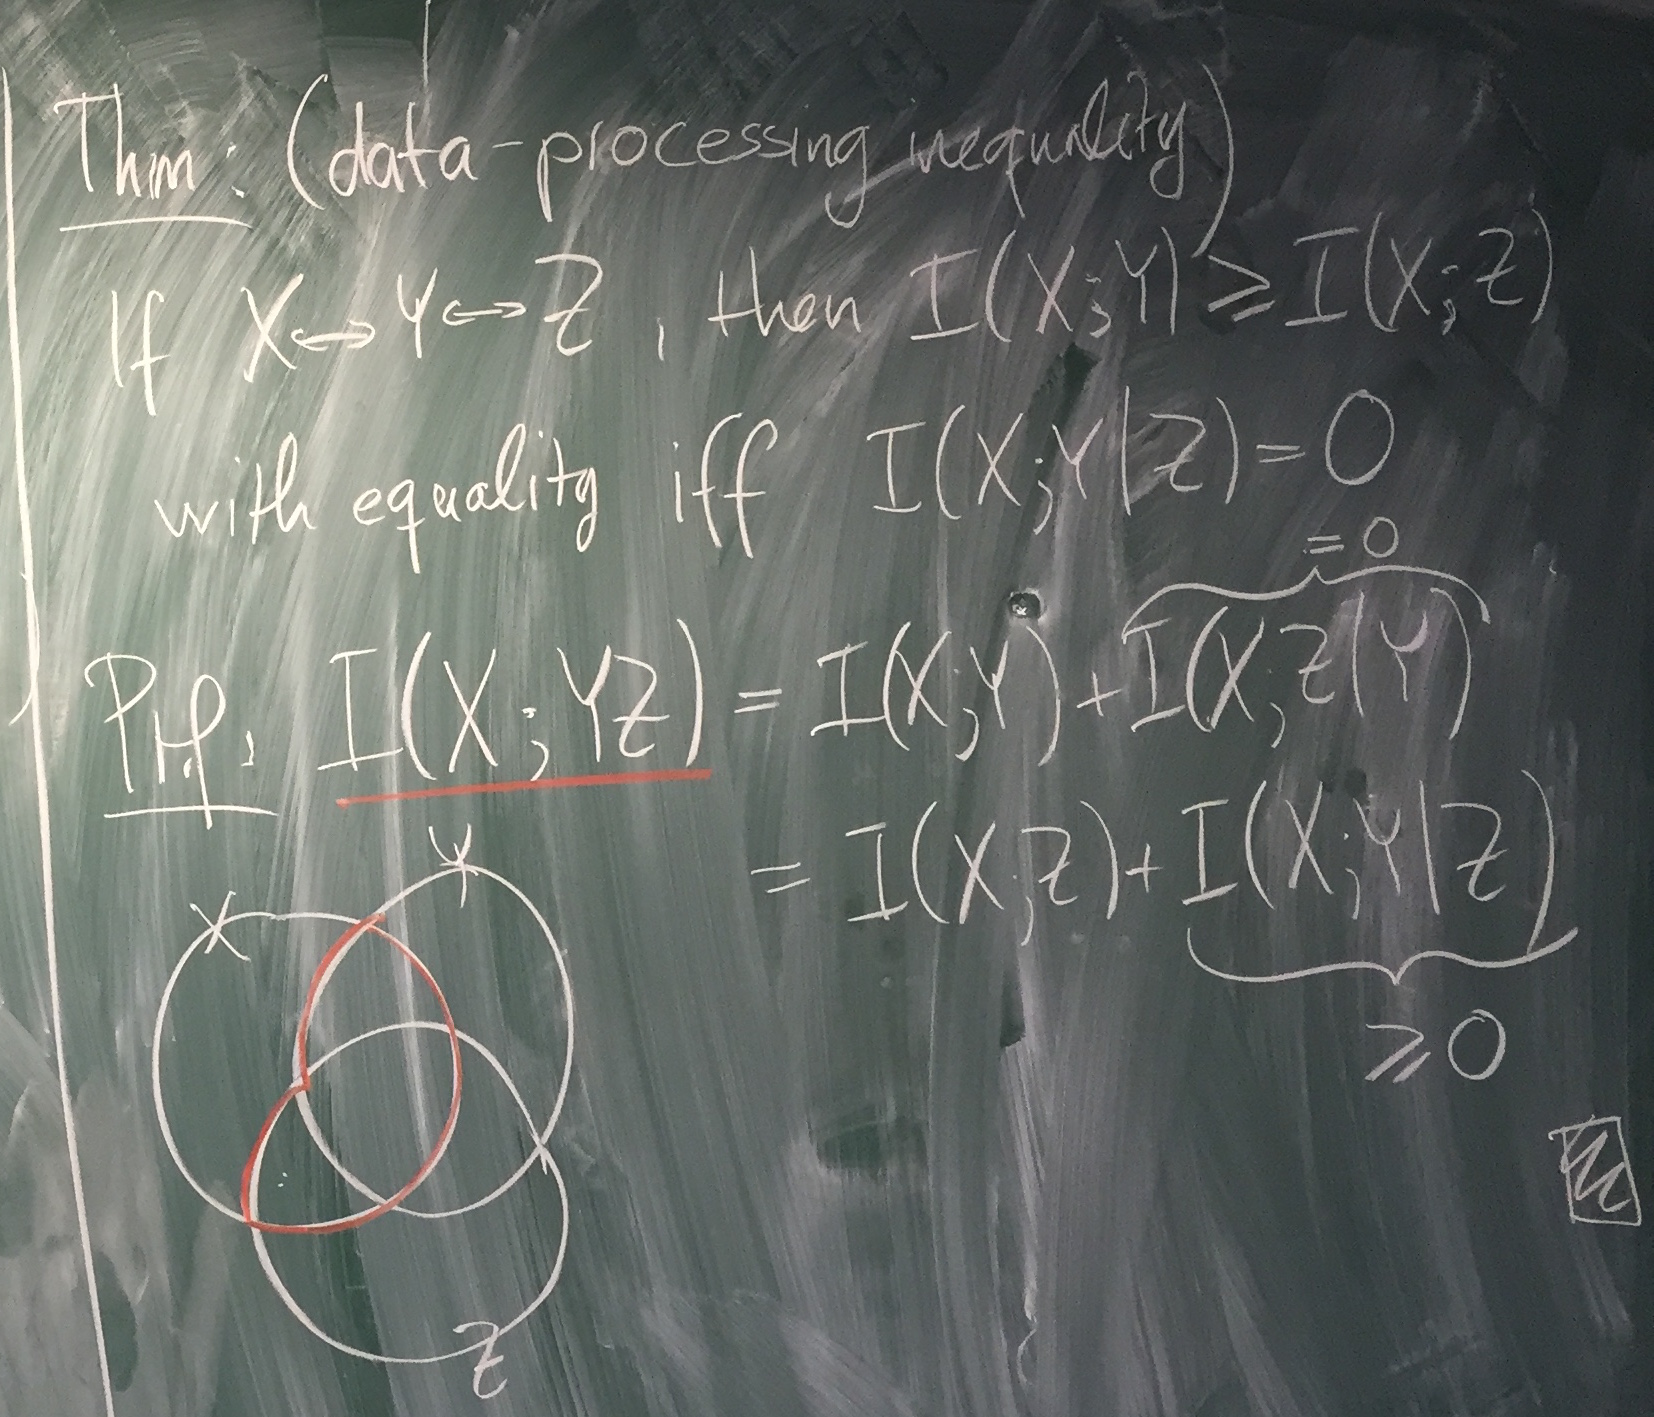 Thm: (data-processing inequality)
If X↔Y↔Z, then I(X;Y) ≥ I(X;Z)
with equality iff I(X;Y|Z)=0
=0
Prf: I(X;YZ) = I(X;Y)+I(X;Z|Y)
= I(X;Z)+I(X;Y|Z)
≥0
X
Y
Z